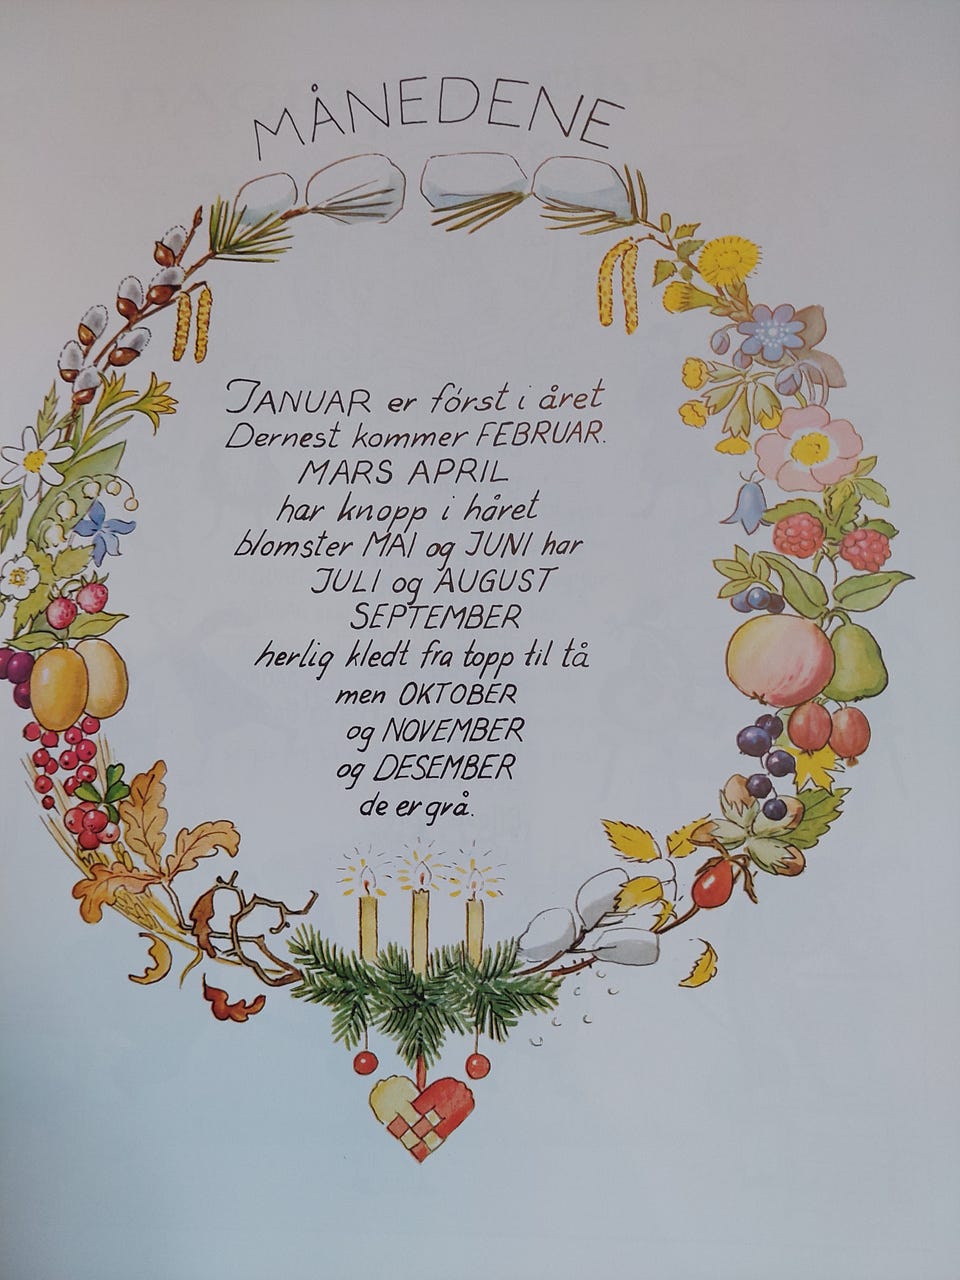 MÅNEDENE
JANUAR er först i året
Dernest kommer FEBRUAR.
MARS APRIL
har knopp i håret
blomster MAI og JUNI har
JULI og AUGUST
SEPTEMBER
herlig kledt fra topp til tå
men OKTOBER
og NOVEMBER
og DESEMBER
de er grå.